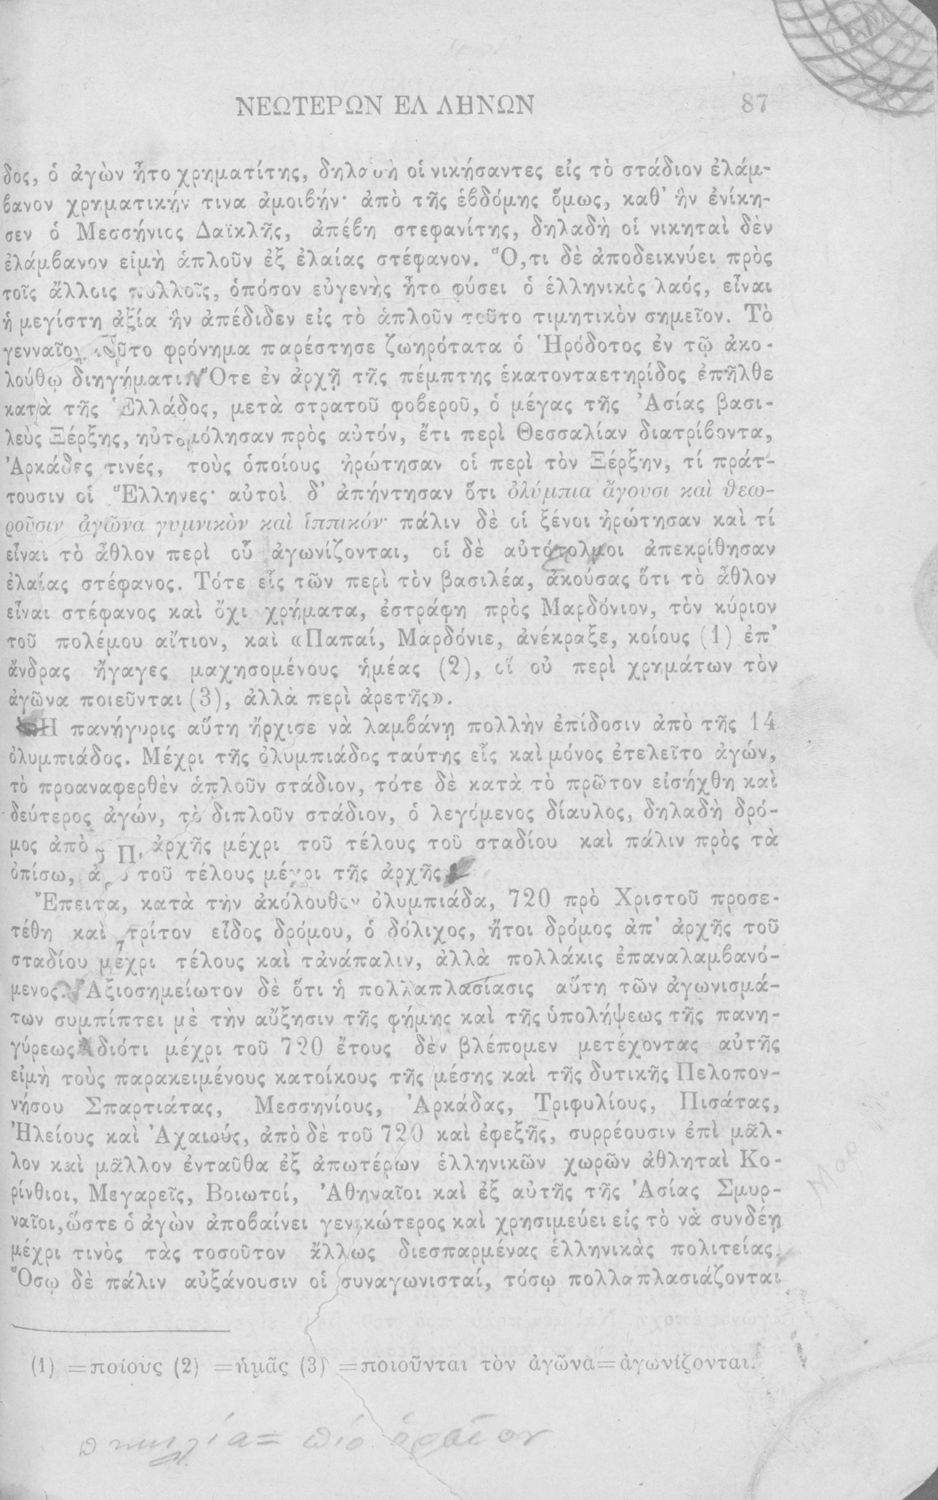 ΝΕΩΤΕΡΩΝ ΕΛΛΗΝΩΝ 87
δος, ὁ ἀγὼν ἦτο χρηματίτης, δηλαδὴ οἱ νικήσαντες εἰς τὸ στάδιον ἐλάμ-
βανον χρηματικήν τινα ἀμοιβήν· ἀπὸ τῆς ἑβδόμης ὅμως, καθ' ἣν ἐνίκη-
σεν ὁ Μεσσήνιος Δαϊκλῆς, ἀπέβη στεφανίτης, δηλαδὴ οἱ νικηταὶ δὲν
ἐλάμβανον εἰμὴ ἁπλοῦν ἐξ ἐλαίας στέφανον. Ὅ,τι δὲ ἀποδεικνύει πρὸς
τοῖς ἄλλοις πολλοῖς, ὁπόσον εὐγενὴς ἦτο φύσει ὁ ἑλληνικὸς λαός, εἶναι
ἡ μεγίστη ἀξία ἣν ἀπέδιδεν εἰς τὸ ἁπλοῦν τοῦτο τιμητικὸν σημεῖον. Τὸ
γενναῖον τοῦτο φρόνημα παρέστησε ζωηρότατα ὁ Ἡρόδοτος ἐν τῷ ἀκο-
λούθῳ διηγήματι. Ὅτε ἐν ἀρχῇ τῆς πέμπτης ἑκατονταετηρίδος ἐπῆλθε
κατὰ τῆς Ἑλλάδος, μετὰ στρατοῦ φοβεροῦ, ὁ μέγας τῆς Ἀσίας βασι-
λεὺς Ξέρξης, ηὐτομόλησαν πρὸς αὐτόν, ἔτι περὶ Θεσσαλίαν διατρίβοντα,
Ἀρκάδες τινές, τοὺς ὁποίους ἠρώτησαν οἱ περὶ τὸν Ξέρξην, τί πράτ-
τουσιν οἱ Ἕλληνες· αὐτοὶ δ' ἀπήντησαν ὅτι ὀλύμπια ἄγουσι καὶ θεω-
ροῦσιν ἀγῶνα γυμνικὸν καὶ ἱππικόν· πάλιν δὲ οἱ ξένοι ἠρώτησαν καὶ τί
εἶναι τὸ ἆθλον περὶ οὗ ἀγωνίζονται, οἱ δὲ αὐτόμολοι ἀπεκρίθησαν
ἐλαίας στέφανος. Τότε εἷς τῶν περὶ τὸν βασιλέα, ἀκούσας ὅτι τὸ ἆθλον
εἶναι στέφανος καὶ ὄχι χρήματα, ἐστράφη πρὸς Μαρδόνιον, τὸν κύριον
τοῦ πολέμου αἴτιον, καὶ «Παπαί, Μαρδόνιε, ἀνέκραξε, κοίους (1) ἐπ'
ἄνδρας ἤγαγες μαχησομένους ἡμέας (2), οἳ οὐ περὶ χρημάτων τὸν
ἀγῶνα ποιεῦνται (3), ἀλλὰ περὶ ἀρετῆς».
Ἡ πανήγυρις αὕτη ἤρχισε νὰ λαμβάνῃ πολλὴν ἐπίδοσιν ἀπὸ τῆς 14
ὀλυμπιάδος. Μέχρι τῆς ὀλυμπιάδος ταύτης εἷς καὶ μόνος ἐτελεῖτο ἀγών,
τὸ προαναφερθὲν ἁπλοῦν στάδιον, τότε δὲ κατὰ τὸ πρῶτον εἰσήχθη καὶ
δεύτερος ἀγών, τὸ διπλοῦν στάδιον, ὁ λεγόμενος δίαυλος, δηλαδὴ δρό-
μος ἀπὸ ἀρχῆς μέχρι τοῦ τέλους τοῦ σταδίου καὶ πάλιν πρὸς τὰ
ὀπίσω, τοῦ τέλους μέχρι τῆς ἀρχῆς
Ἔπειτα, κατὰ τὴν ἀκόλουθον ὀλυμπιάδα, 720 πρὸ Χριστοῦ προσε-
τέθη καὶ τρίτον εἶδος δρόμου, ὁ δόλιχος, ἤτοι δρόμος ἀπ' ἀρχῆς τοῦ
σταδίου μέχρι τέλους καὶ τἀνάπαλιν, ἀλλὰ πολλάκις ἐπαναλαμβανό-
μενος. Ἀξιοσημείωτον δὲ ὅτι ἡ πολλαπλασίασις αὕτη τῶν ἀγωνισμά-
των συμπίπτει μὲ τὴν αὔξησιν τῆς φήμης καὶ τῆς ὑπολήψεως τῆς πανη-
γύρεως διότι μέχρι τοῦ 720 ἔτους δὲν βλέπομεν μετέχοντας αὐτῆς
εἰμὴ τοὺς παρακειμένους κατοίκους τῆς μέσης καὶ τῆς δυτικῆς Πελοπον-
νήσου Σπαρτιάτας, Μεσσηνίους, Ἀρκάδας, Τριφυλίους, Πισάτας,
Ἠλείους καὶ Ἀχαιούς, ἀπὸ δὲ τοῦ 720 καὶ ἐφεξῆς, συρρέουσιν ἐπὶ μᾶλ-
λον καὶ μᾶλλον ἐνταῦθα ἐξ ἀπωτέρων ἑλληνικῶν χωρῶν ἀθληταὶ Κο-
ρίνθιοι, Μεγαρεῖς, Βοιωτοί, Ἀθηναῖοι καὶ ἐξ αὐτῆς τῆς Ἀσίας Σμυρ-
ναῖοι, ὥστε ὁ ἀγὼν ἀποβαίνει γενικώτερος καὶ χρησιμεύει εἰς τὸ νὰ συνδέῃ
μέχρι τινὸς τὰς τοσοῦτον ἄλλως διεσπαρμένας ἑλληνικὰς πολιτείας.
Ὅσῳ δὲ πάλιν αὐξάνουσιν οἱ συναγωνισταί, τόσῳ πολλαπλασιάζονται
(1) =ποίους (2) =ἡμᾶς (3) =ποιοῦνται τὸν ἀγῶνα=ἀγωνίζονται.